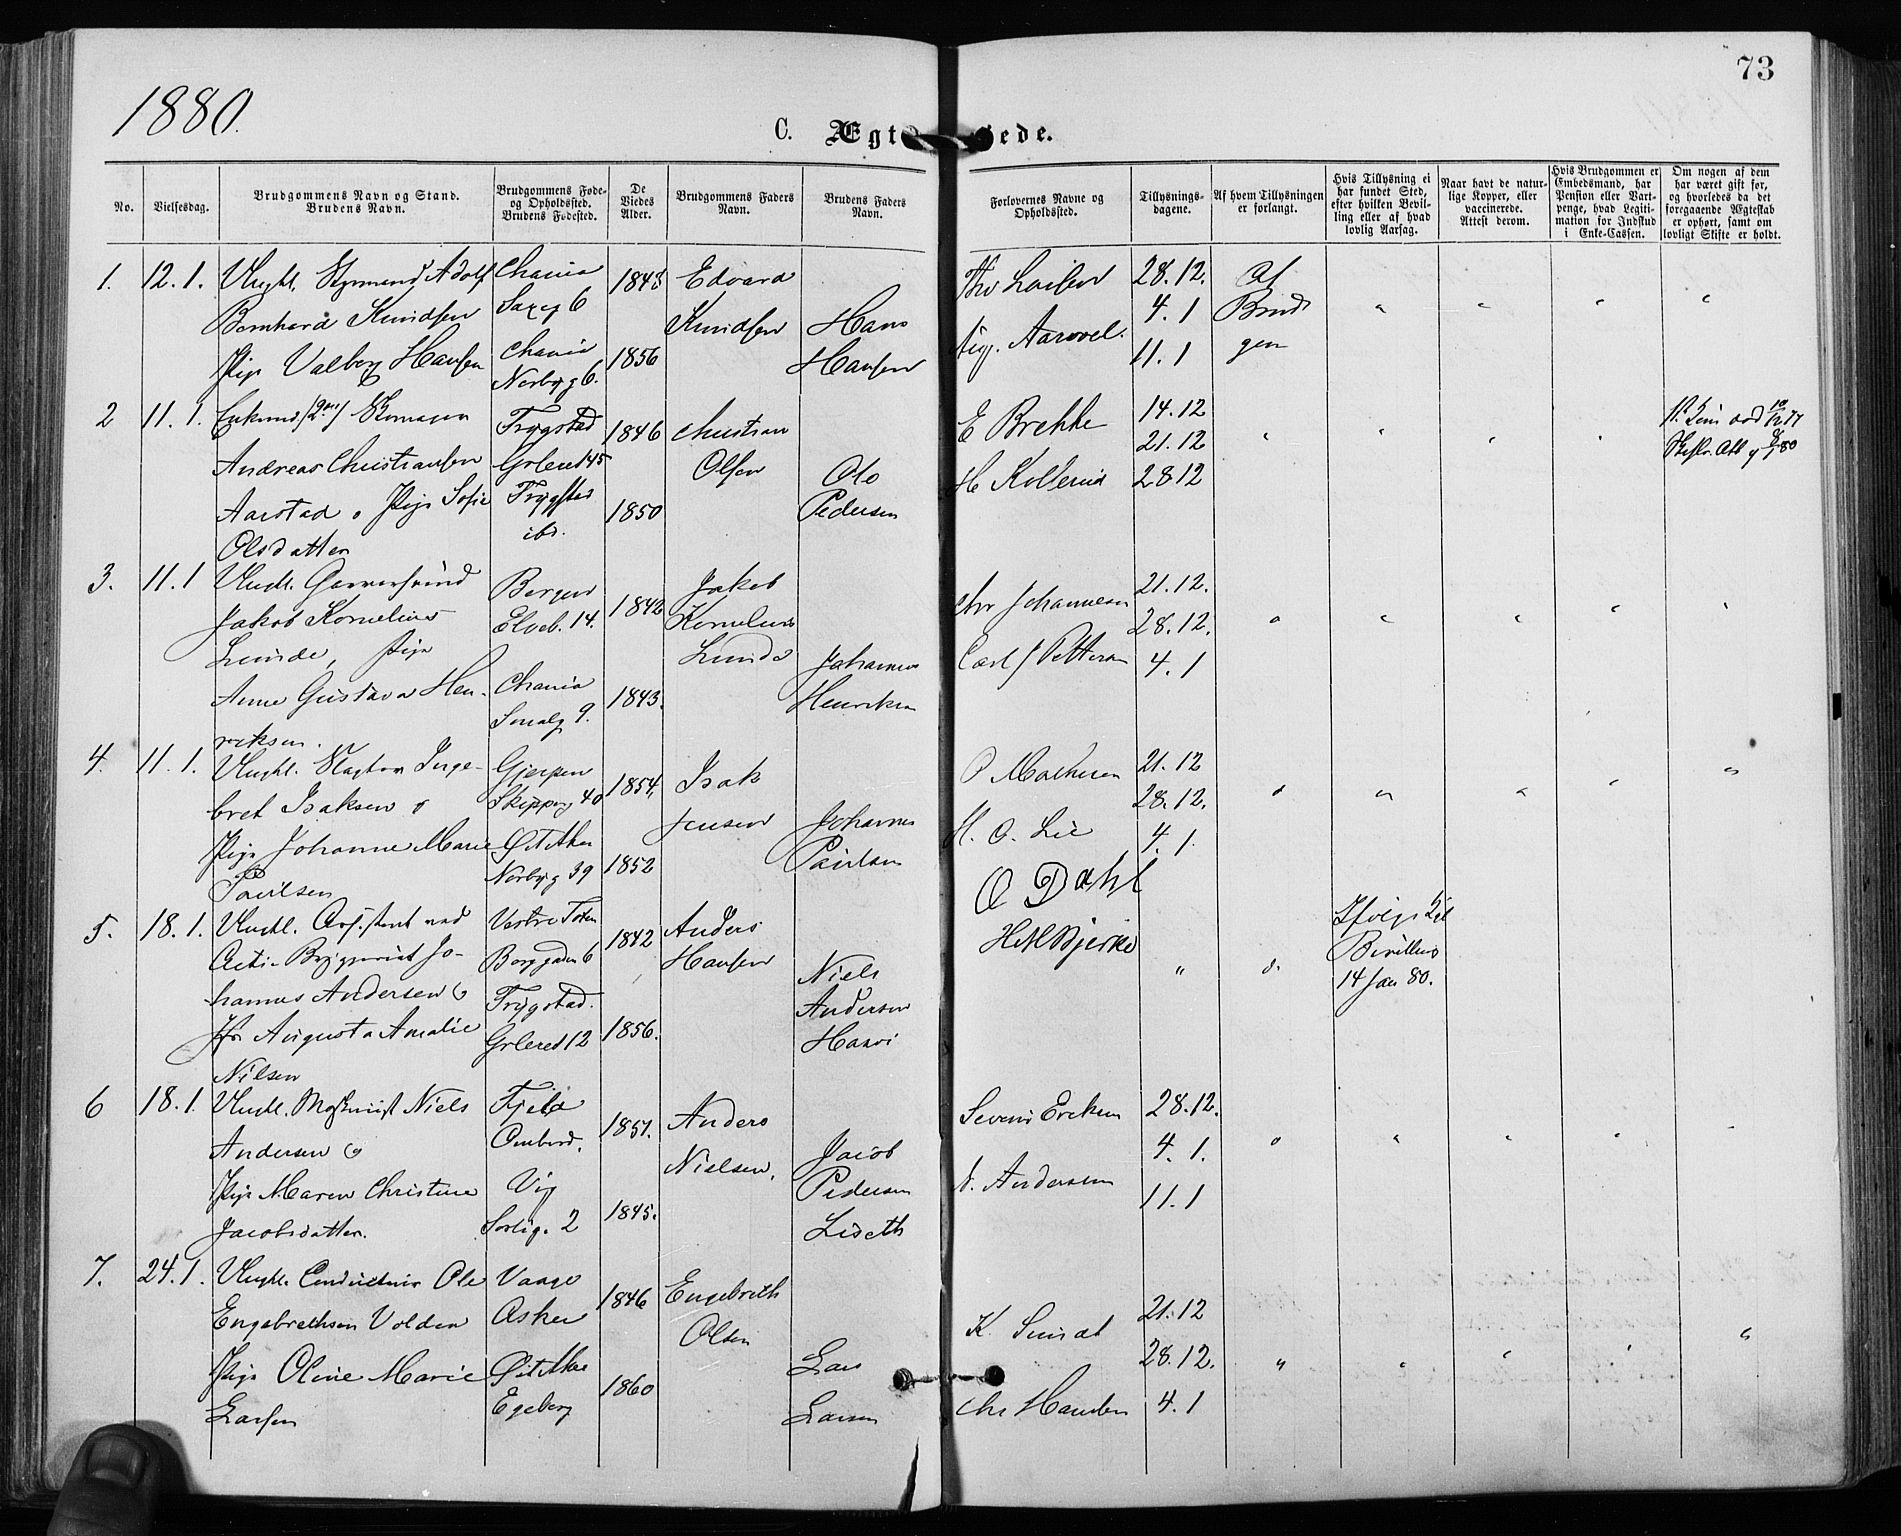 1880.
73
C. Ægt ede.
No.
Vielsesdag.
Brudgommens Navn og Stand.
Brudens Navn.
Brudgommens Føde-
og Opholdssted.
Brudens Fødested.
De
Viedes
Alder.
Brudgommens Faders
Navn.
Brudens Faders
Navn.
Forlovernes Navne og
Opholdssted.
Tillysnings-
dagene.
Af hvem Tillysningen
er forlangt.
Hvis Tillysning ei
har fundet Sted,
efter hvilken Bevil-
ling eller af hvad
lovlig Aarsag.
Naar havt de natur-
lige Kopper, eller
vaccinerede.
Attest derom.
Hvis Brudgommen er
Embedsmand, har
Pension eller Vart-
penge, hvad Legiti-
mation for Indskud
i Enke-Cassen.
Om nogen af dem
har været gift før,
og hvorledes da det
foregaaende Ægteskab
er ophørt, samt om
lovligt Skifte er holdt.
1. 12.1. Ungkl. Adolf
Bernhard Knudsen
Pige Valborg Hansen
Chania
6
Chania
Norbyg 6.
1848
1856
Edvard
Knudsen
Hans
Hansen
Aarvol.
28.12.
4.1
11.1
Af
Brud
gen
" " " "
2 11.1. Enkemd
Andreas Christiansen
Aarstad o Pige Sofie
Olsdatter
Trygstad
Grleret 45
Trygstad
ibd.
1846
1850
Christian
Olsen
Ole
Pedersen
E Brekke
H Kollerud
14.12
21.12
28 12
" " " "
3. 11.1 Ungkl. Garversvend
Jakob Kornelius
Lunde, Pige
Anne Gustava Hen-
riksen.
Bergen
Elveb. 14.
Chania
9.
1842
1843.
Jakob
Kornelius
Lunde
Johannes
Henriksen
Chr Johannesen
Carl J Pettersen
21.12.
28.12.
4.1
" " " " "
4. 11.1. Ungkl. Inge-
bret Isaksen o
Pige Johanne Marie
Paulsen
Gjerpen
Skipperg 40
Ø. Aker
Norbyg 39
1854.
1852
Isak
Jensen
Johannes
Paulsen
O Mathesen
H. O. Lie
21.12
28.12.
4.1.
" " " " "
5. 18.1. Ungkl. Assistent ved
Acti- Bryggeriet Jo-
hannes Andersen o
Jfr Augusta Amalie
Nilsen
Vestre Toten
Borggaden 6
Trygstad.
Grleret 12
1842
1856.
Anders
Hansen
Niels
Andersen
O Dahl
H M Bjerke
" "
Ifølge
14 Jan 80.
6 18.1. Ungkl. Maskinist Niels
Andersen o
Pige Maren Christine
Jacobsdatter.
Fjeld
Ombord.
Vig
2
1851.
1845.
Anders
Nielsen.
Jacob
Pedersen
Lideth
Severin Ericksen
N. Andersen
28.12.
4.1.
11.1
" " " " "
7. 24.1. Ungkl. Conducteur Ole
Engebrethsen Volden
Pige Oline Marie
Larsen
Vaage
Asker
Ø. Aker
Egeberg
1846
1860
Engebreth
Olsen
Lars
Larsen
K.
Chr
21.12
28.12.
4.1
" " " " "